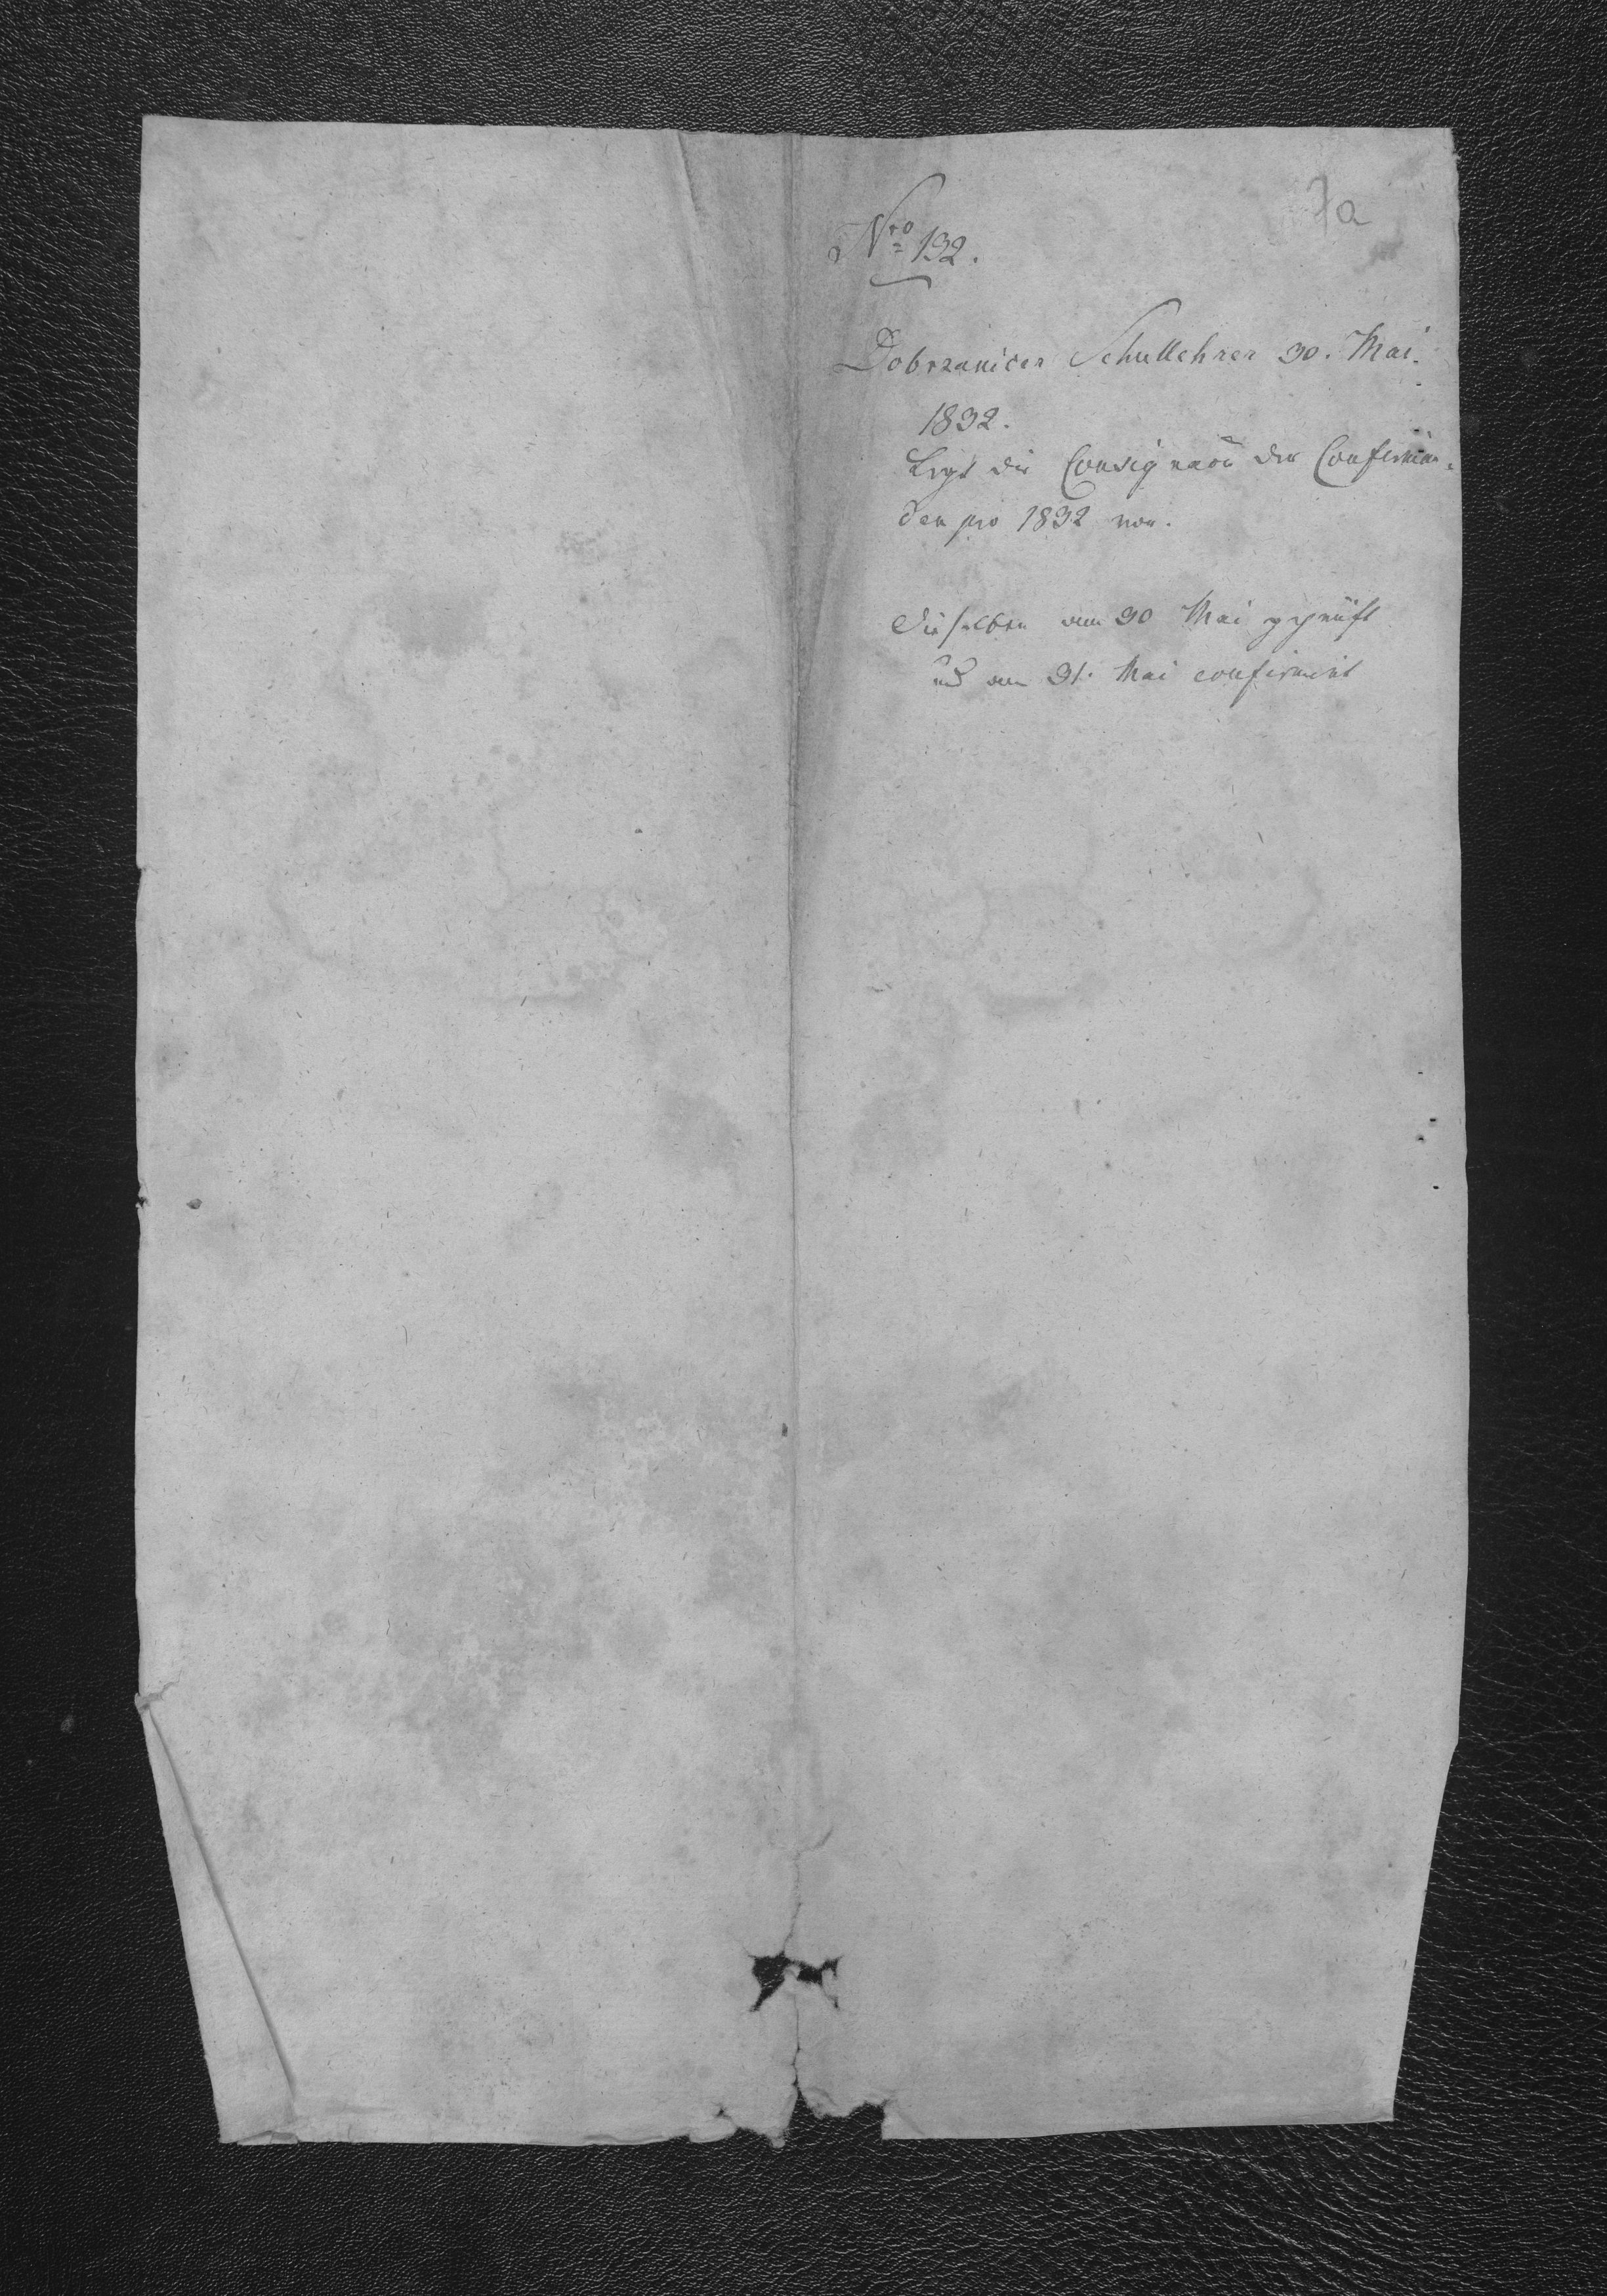 7a
Nro 132.
Dobrzanicer Schullehrer 30. Mai
1832.
Legt die Consignaōn der Confirman-
den pro 1832 vor.
Dieselben am 30 Mai geprüft
und am 31. Mai confirmirt